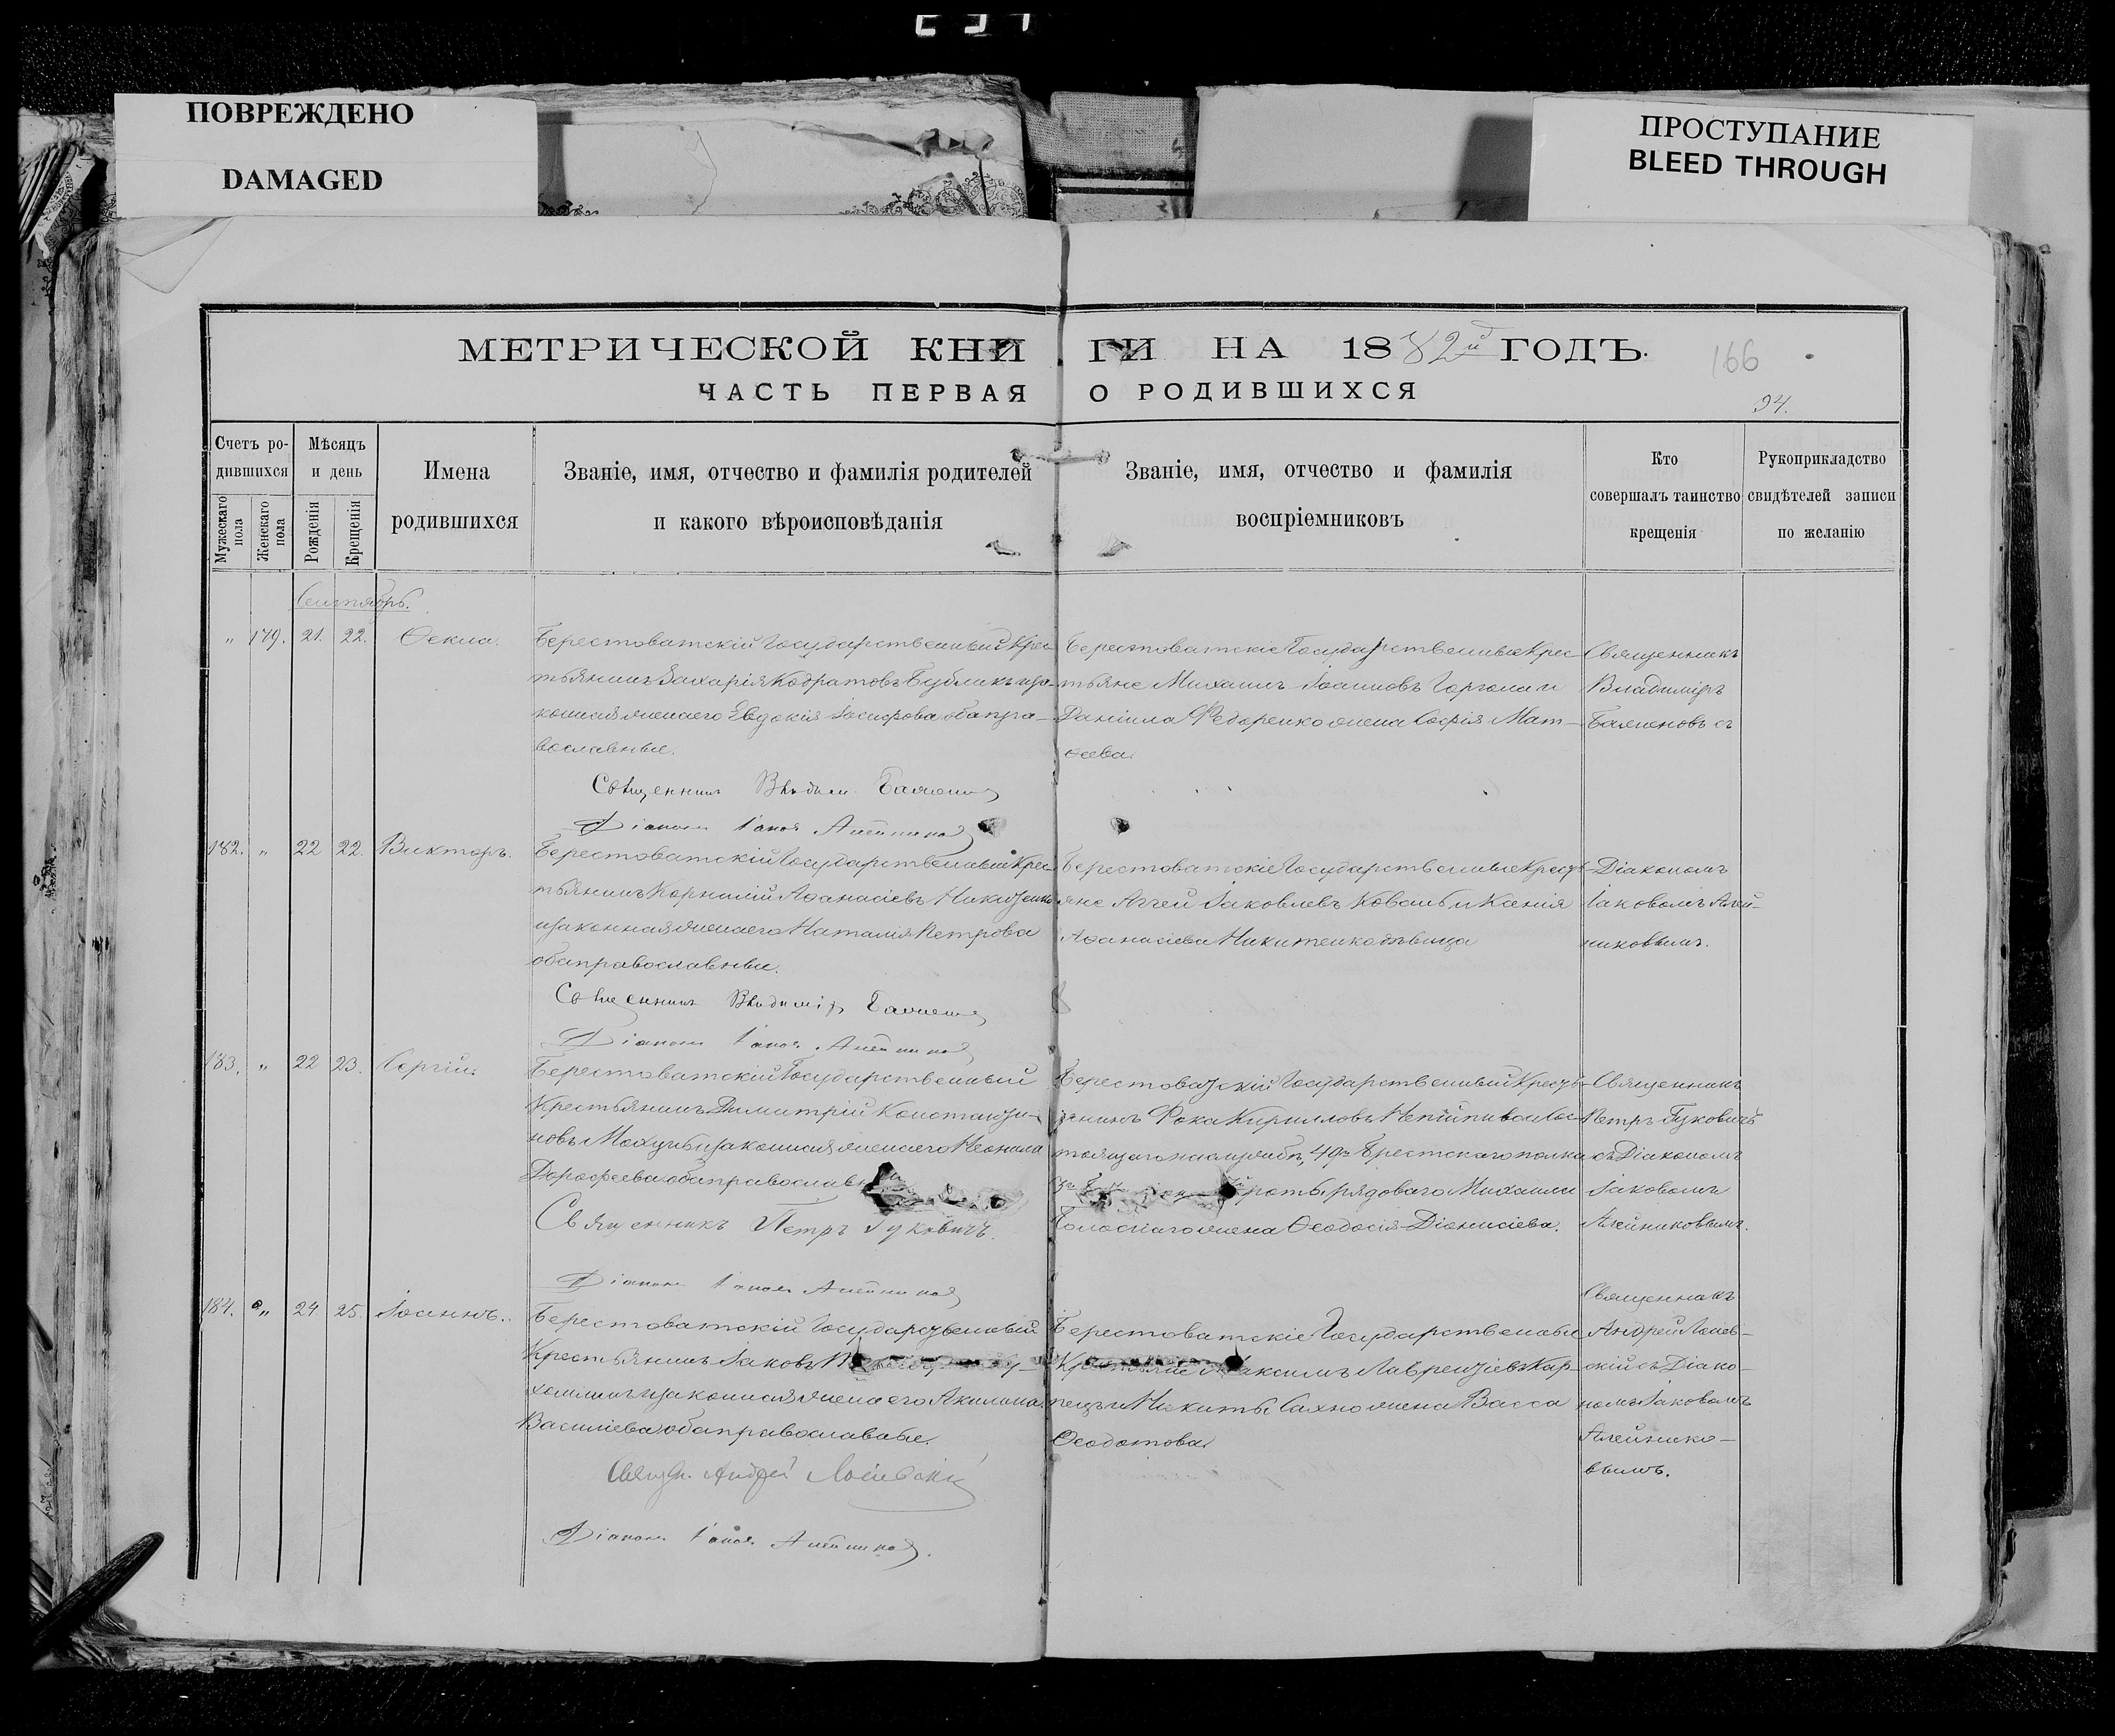 ПОВРЕЖДЕНО
DAMAGED
ПРОСТУПАНИЕ
BLEED THROUGH
МЕТРИЧЕСКОЙ КНИГИ НА 1882й ГОДЪ.
166
ЧАСТЬ ПЕРВАЯ О РОДИВШИХСЯ
94.
Счетъ ро-
дившихся
Мужескаго пола
Женскаго пола
Мѣсяцъ
и день
Рожденія
Крещенія
Имена
родившихся
Званіе, имя, отчество и фамилія родителей
и какого вѣроисповѣданія
Званіе, имя, отчество и фамилія
воспріемниковъ
Кто
совершалъ таинство
крещенія
Рукоприкладство
свидѣтелей записи
по желанію
Сентябрь.
" 179. 21. 22. Ѳекла.
Берестоватскій Государственный Крес-
тьянинъ Захарія Кодратовъ Бубликъ и за-
конная жена его Евдокія Іосифова оба пра-
вославные.
Священникъ Владим. Баженовъ
Діаконъ Іаковъ Алейниковъ
Берестоватскіе Государственные Крес-
тьяне Михаилъ Іоанновъ и
Даніила Федоренко жена Софія Мат-
ѳеева
Священникъ
Владиміръ
Баженовъ съ
182. " 22 22. Викторъ.
Берестоватскій Государственный Крес-
тьянинъ Корнилій Аѳанасіевъ Никитенко
и законная жена его Наталія Петрова
оба православные.
Священникъ Владиміръ Баженовъ
Діаконъ Іаковъ Алейниковъ
Берестоватскіе Государственные Кресть-
яне Аггей Іаковлевъ Коваль и Ксенія
Аѳанасіева Никитенко дѣвица
Діакономъ
Іаковомъ Алей-
никовымъ.
183. " 22 23. Сергій.
Берестоватскій Государственный
Крестьянинъ Димитрій Константи-
новъ и законная жена его Неонила
Дорофеева оба православные
Священникъ Петръ Гуковичъ.
Діаконъ Іаковъ Алейниковъ
Берестоватскій Государственный Кресть-
янинъ Фока Кирилловъ Непійпиво и сос-
тоящаго на службѣ 49го Брестскаго полка
роты рядоваго Михаила
жена Ѳеодосія Діонисіева.
Священникъ
Петръ Гуковичъ
съ Діакономъ
Іаковомъ
Алейниковымъ.
184. " 24 25. Іоаннъ.
Берестоватскій Государственный
Крестьянинъ Іаковъ
и законная жена его Акилина
Василіева оба православные.
Свящ. Андрей Лосіевскій
Діаконъ Іаковъ Алейниковъ.
Берестоватскіе Государственные
Крестьяне Максимъ Лаврентіевъ Кар-
пецъ и Никиты Сахно жена Васса
Ѳеодотова
Священникъ
Андрей Лосіев-
скій съ Діако-
номъ Іаковомъ
Алейнико-
вымъ.